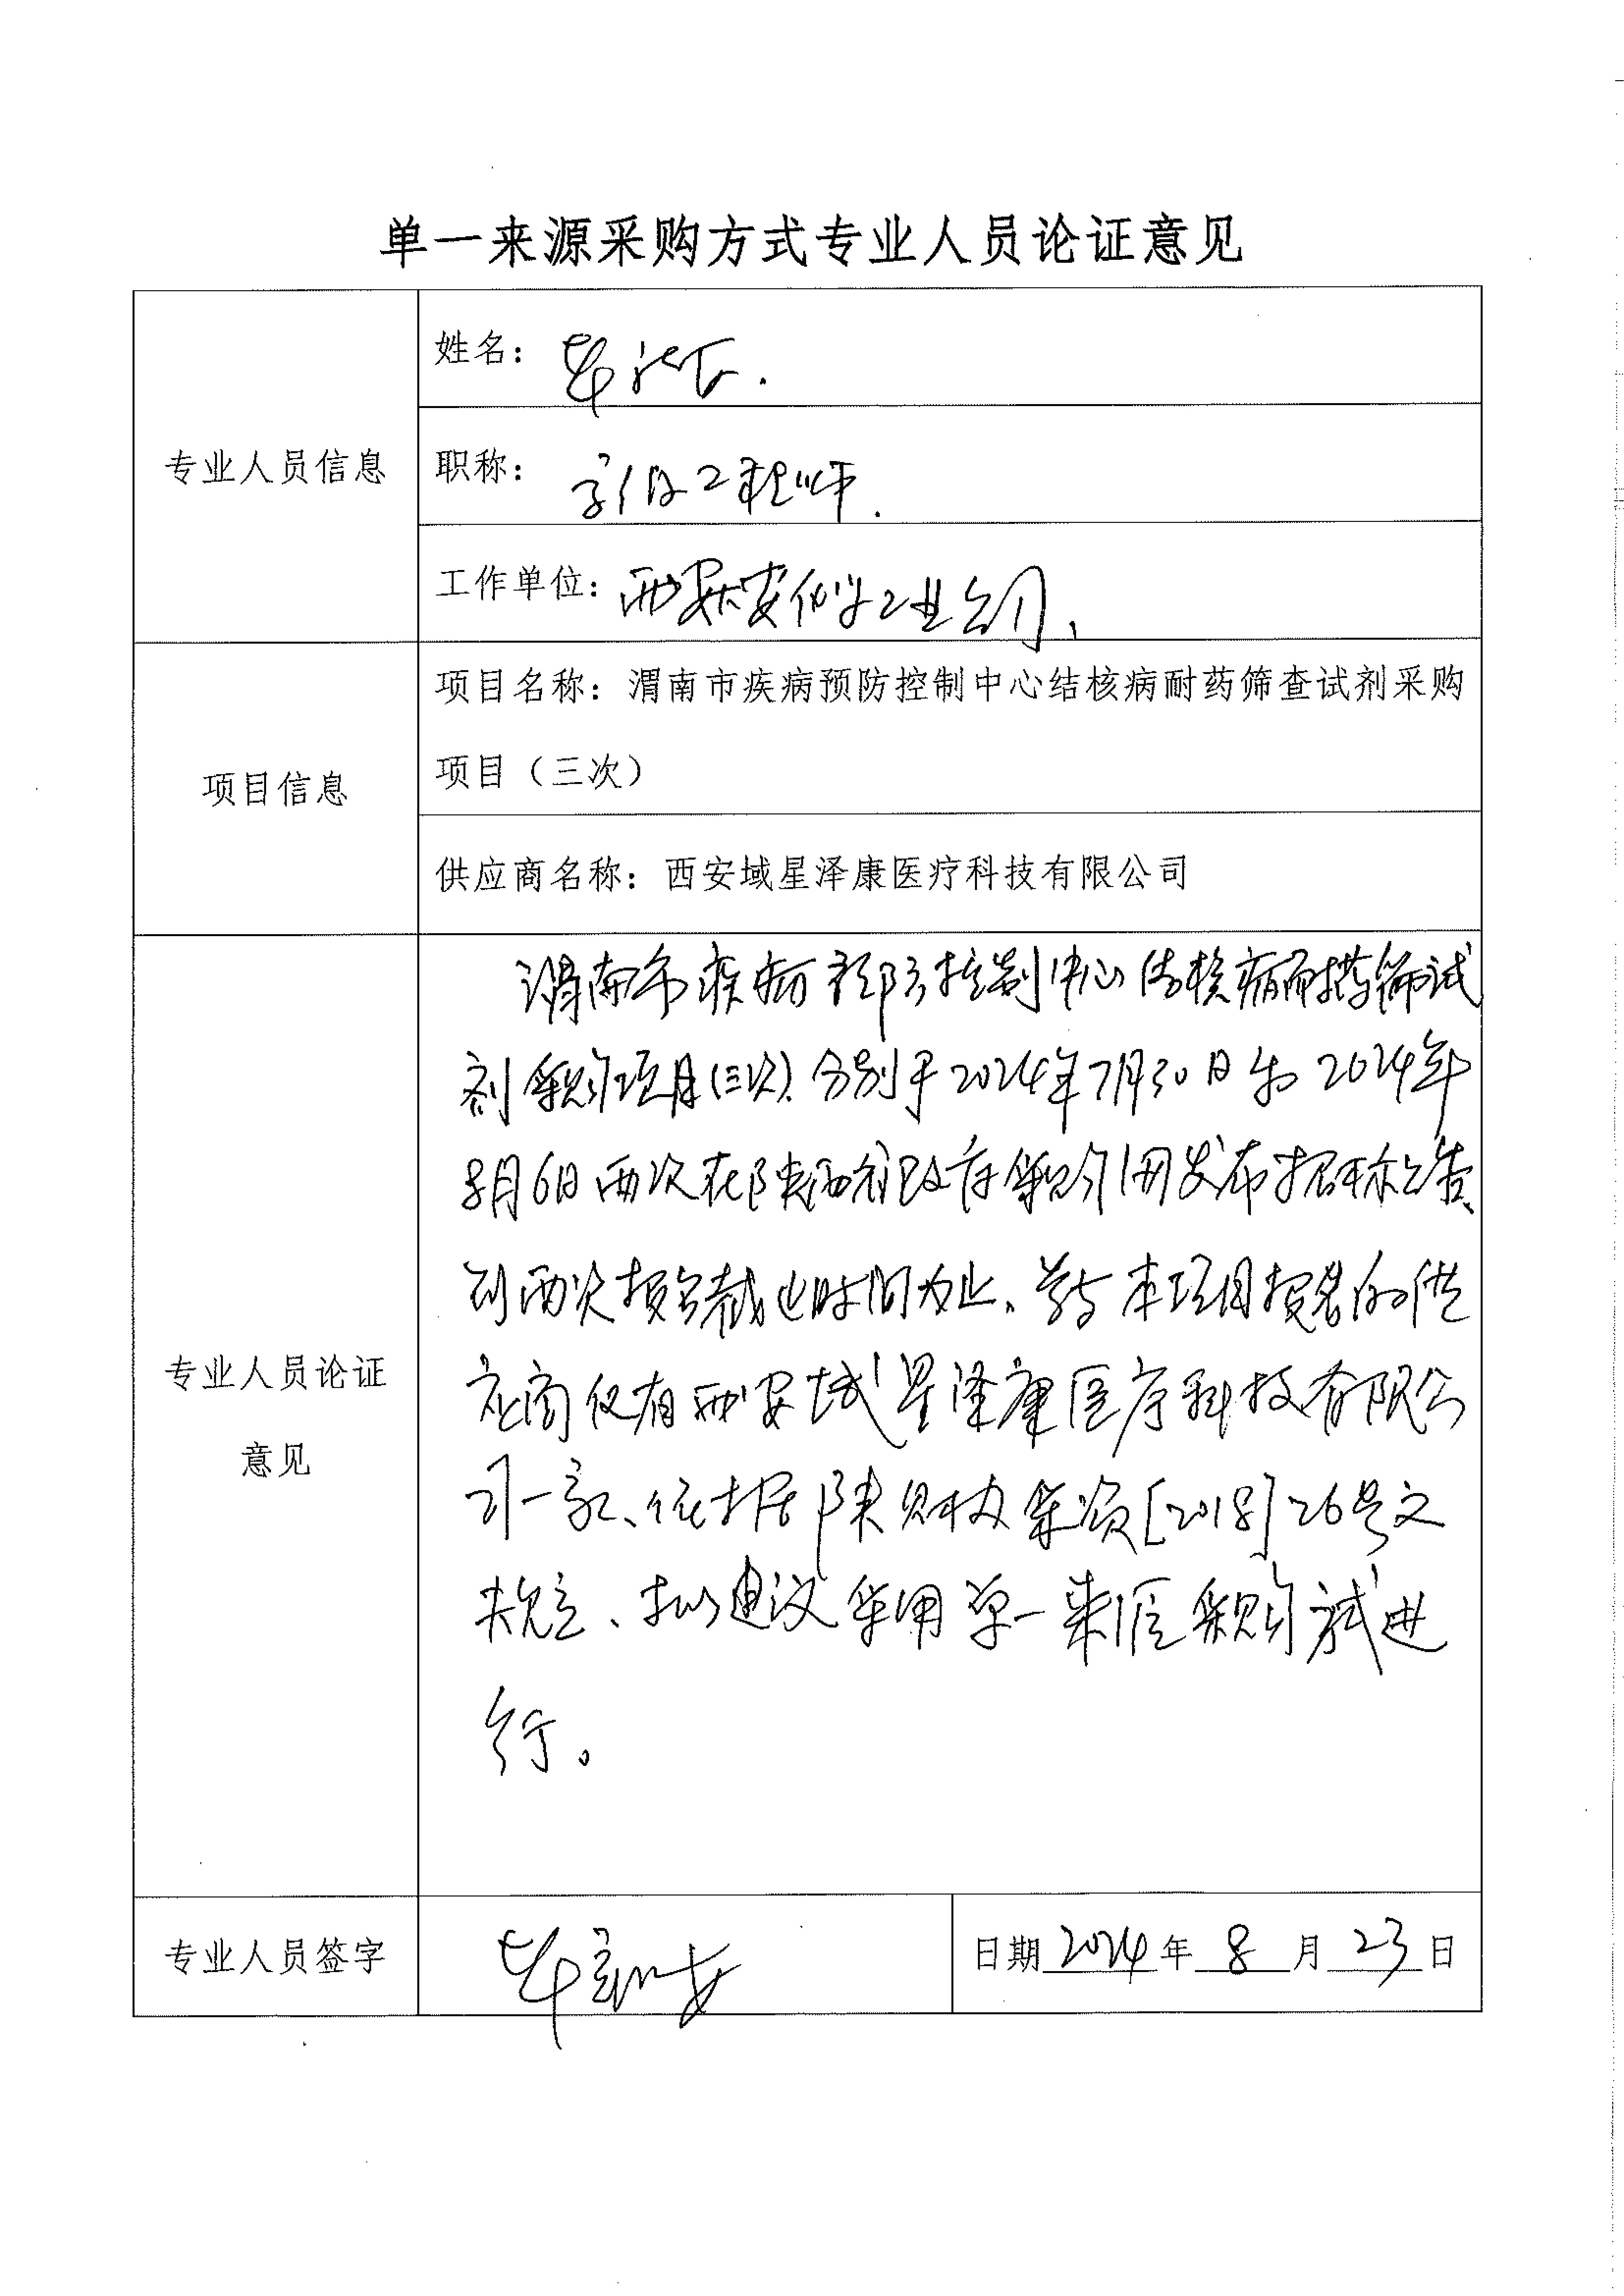 单一来源采购方式专业人员论证意见
专业人员信息
姓名：毕
职称：高级工程师.
工作单位：西安化学工业公司
项目信息
项目名称：渭南市疾病预防控制中心结核病耐药筛查试剂采购
项目（三次）
供应商名称：西安域星泽康医疗科技有限公司
专业人员论证
意见
渭南市疾病预防控制中心结核病耐药筛试
剂采购项目(三次)分别于2024年7月30日和2024年
8月6日两次在陕西省政府采购网发布招标公告、
到两次报名截止时间为止、参与本项目报名的供
应商仅有西安域星泽康医疗科技有限公
司一家、依据陕财办采资[2018]26号文
规定、拟建议采用单一来源采购方式进
行。
专业人员签字
毕
日期2024年8月23日